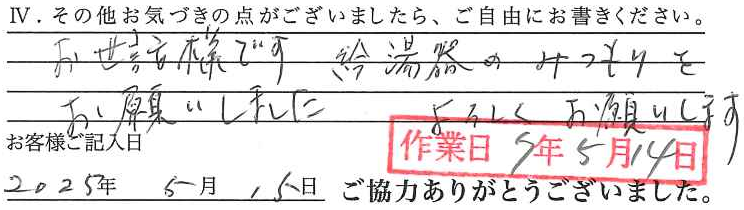 Ⅳ．その他お気づきの点がございましたら、ご自由にお書きください。
お世話様です 給湯器のみつもりを
お願いしました よろしくお願いします
お客様ご記入日
作業日 7年5月14日
2025年 5月 15日 ご協力ありがとうございました。